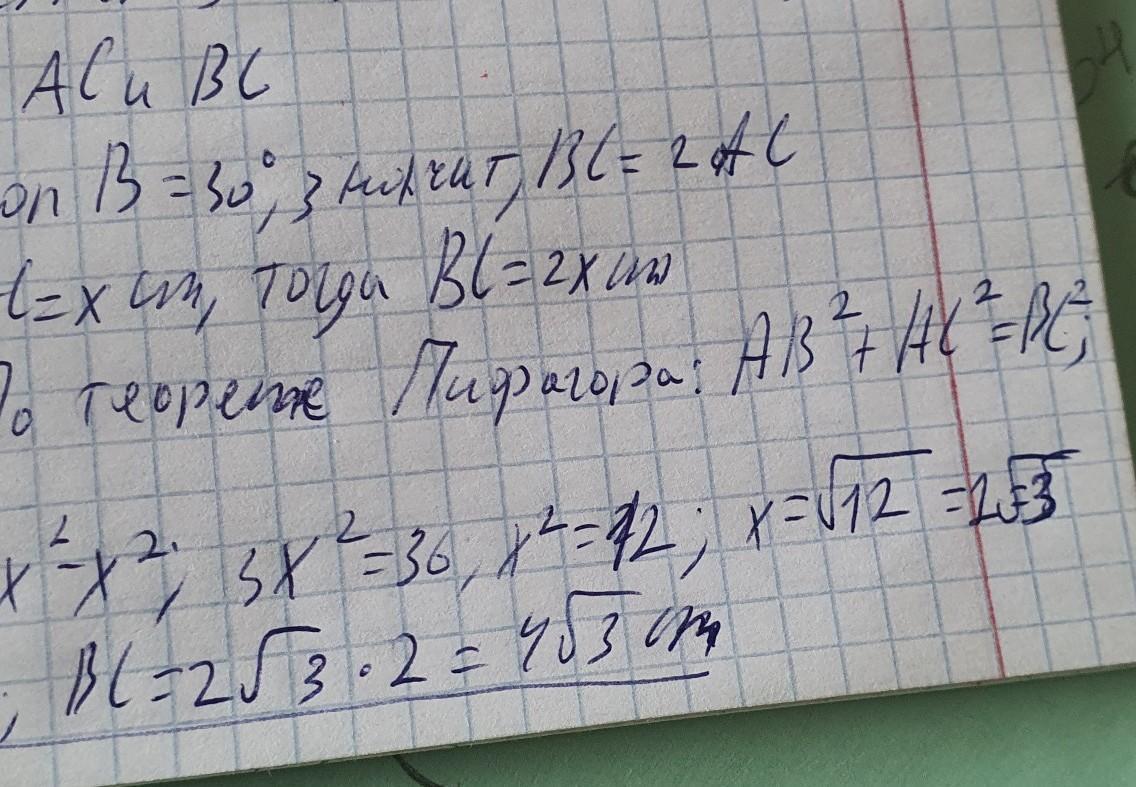 AC и BC
оп B = 30°, значит, BC = 2 AC
C = x см, тогда BC = 2x см
По теореме Пифагора: AB² + AC² = BC²;
x² - x²; 3x² = 36; x² = 12; x = √12 = 2√3
; BC = 2√3 · 2 = 4√3 см